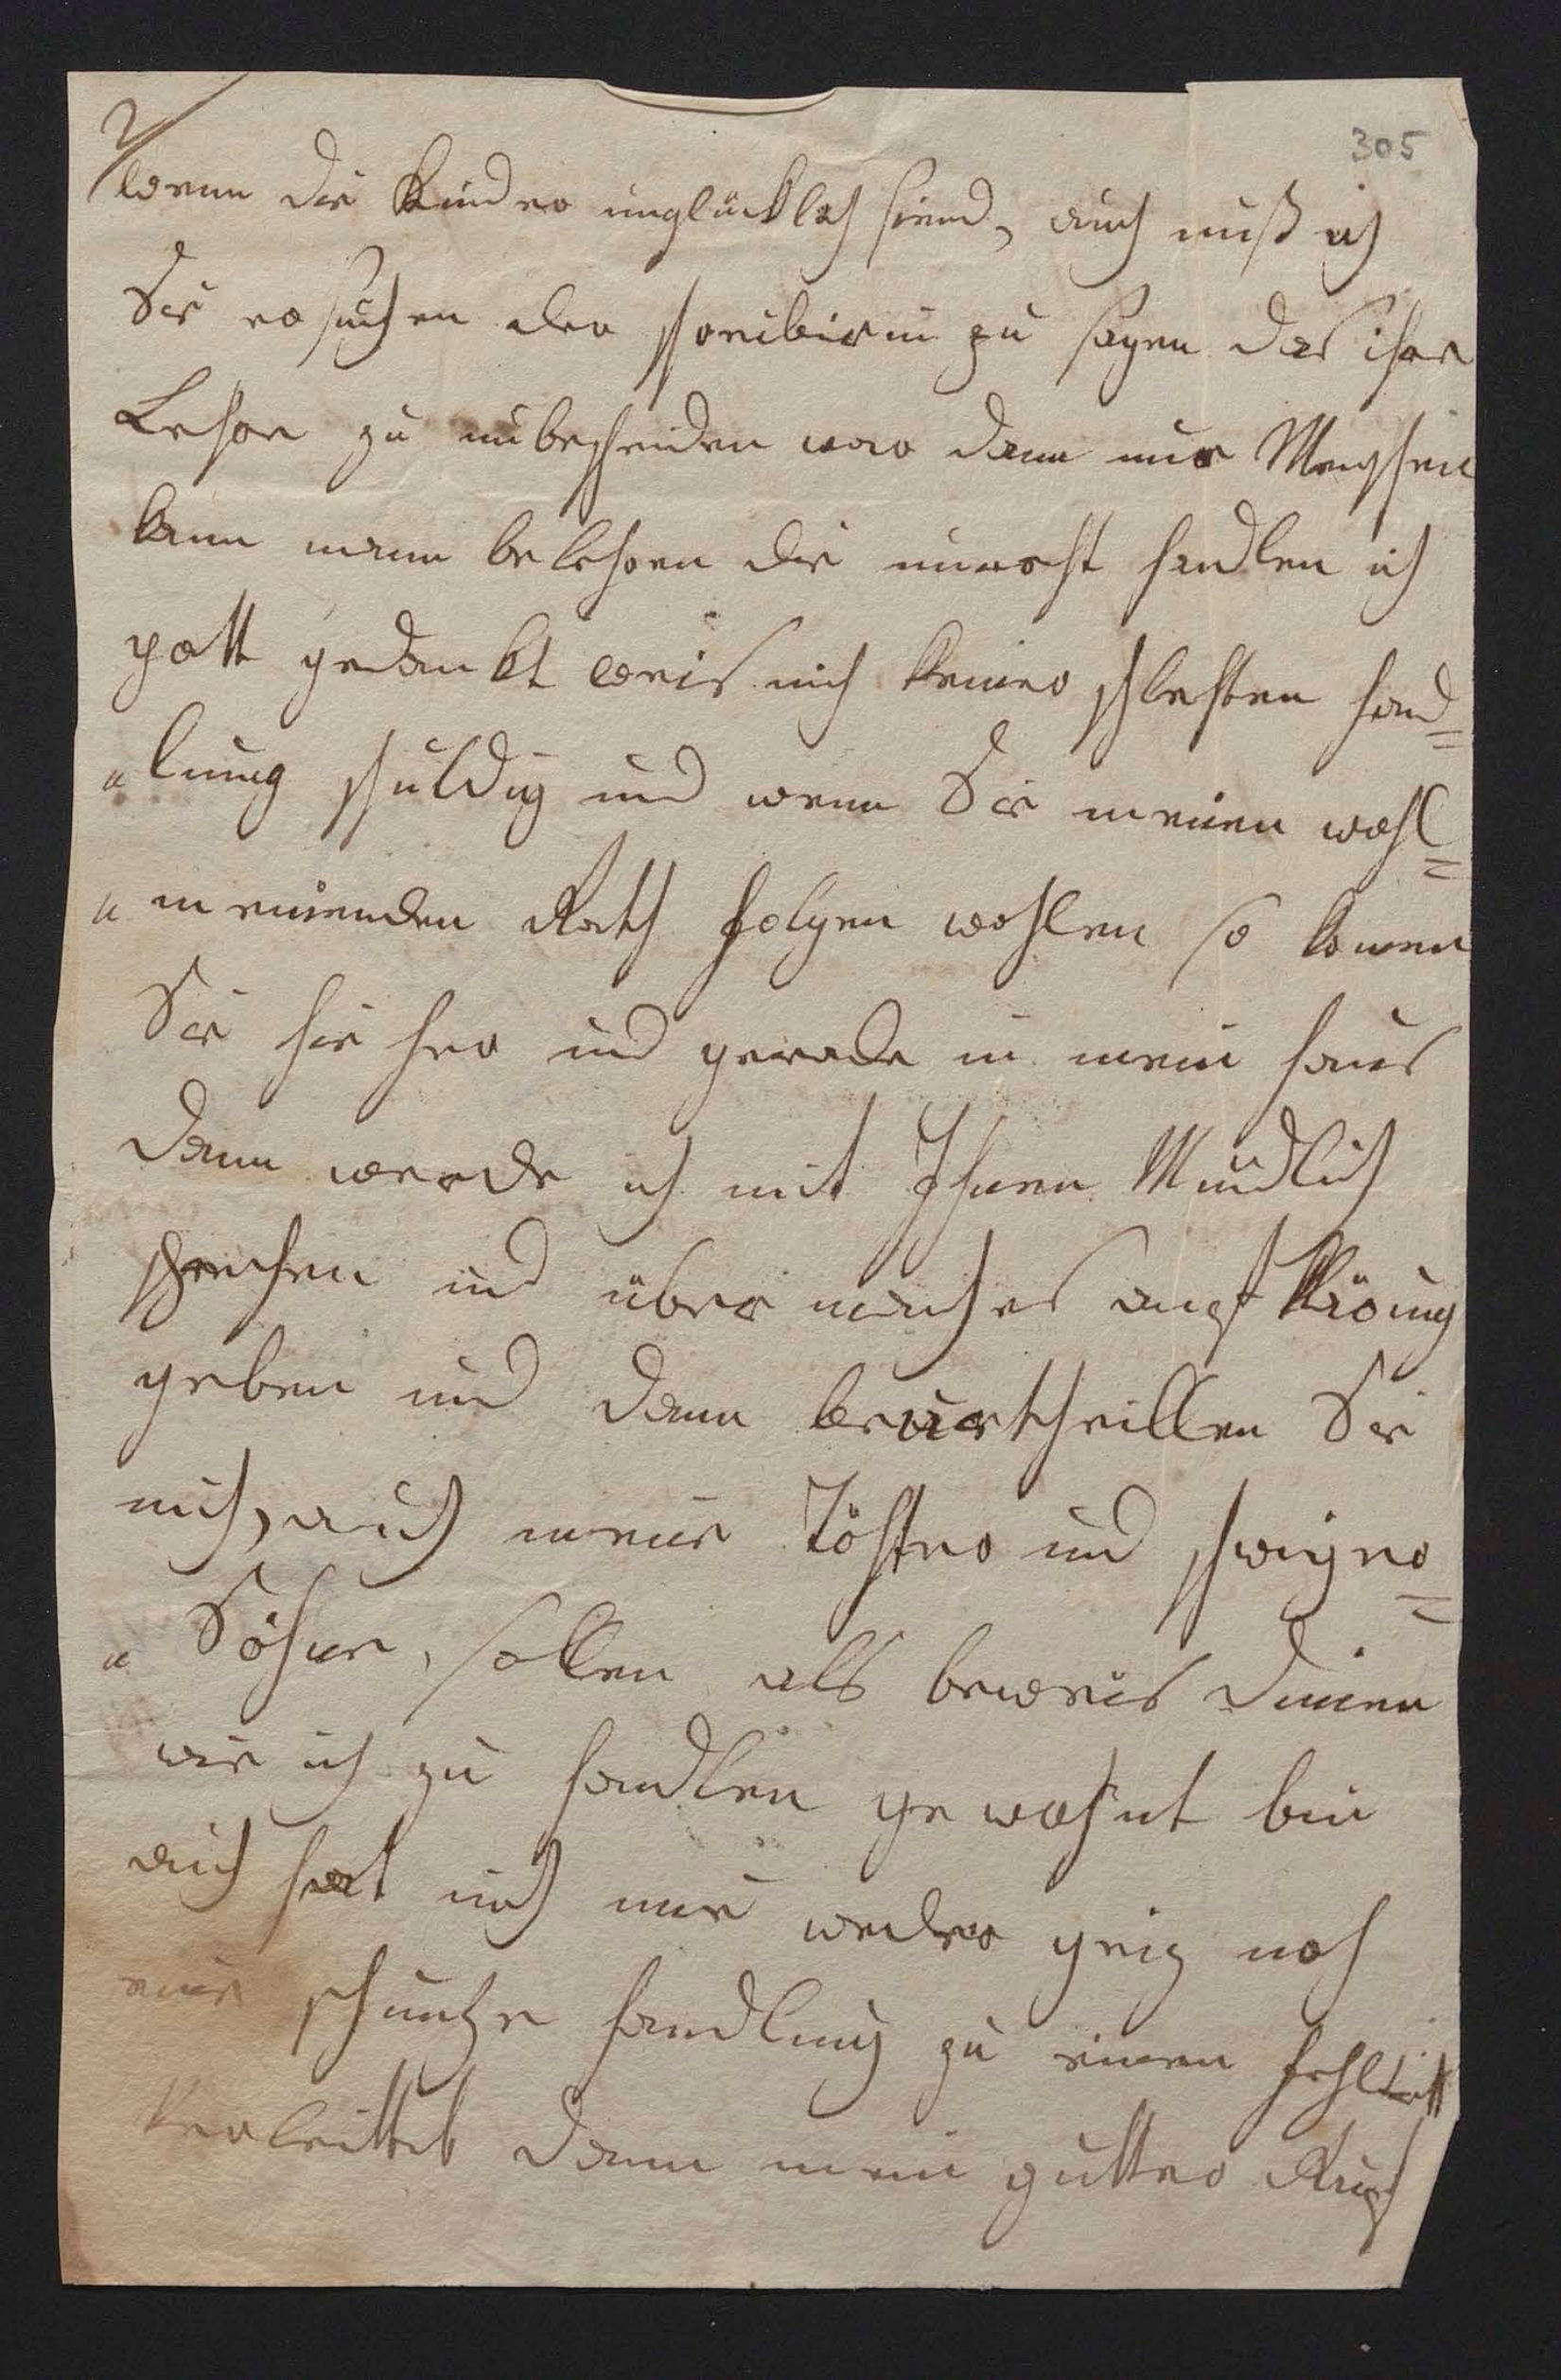 2
305
wenn die Kinder unglücklch siend, auch muß ich
Sie ersuchen der schreiberin zu sagen das ihre
Lehre zu unbescheiden war dann nur Menschen
kann mann belehren die unrecht handlen ich
gott gedankt weis mich keiner schlechten hand=
"lung schuldig und wenn Sie meinen wohl=
"meinenden Rath folgen wohlen so komen
Sie hie her und gerade in mein haus
dann werde ich mit Ihnen Mündlich
sprechen und über manches aufklärung
geben und dann beurtheillen Sie
mich, auch meine Töchter und schwiger=
"Söhne, sollen als beweis dienen
wie ich zu handlen gewohnt bin
auch hat mich nie weder geiz noch
eine schmutze handlung zu einen fehltritt
verleittet dann mein gutter Ruf